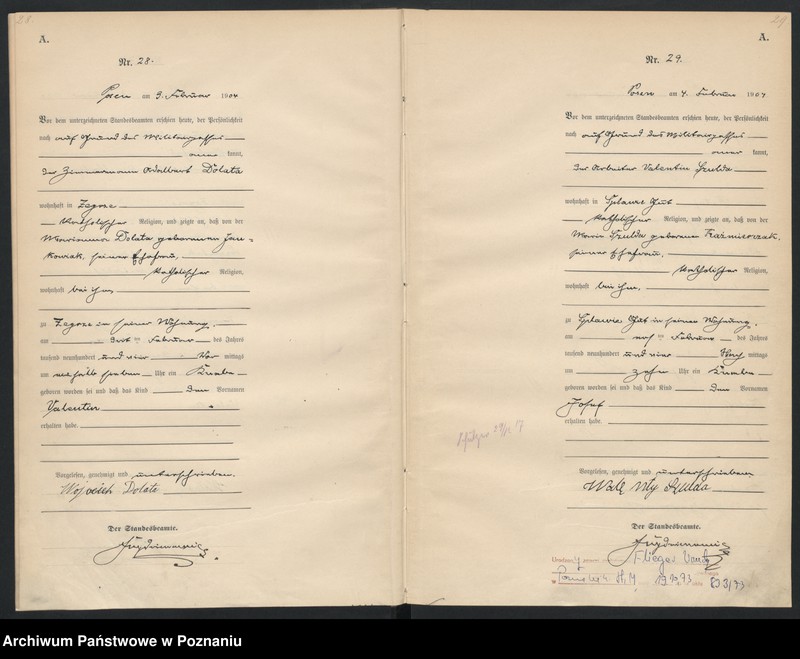 28.
A.
Nr. 28.
am 3. Februar 1904
Vor dem unterzeichneten Standesbeamten erschien heute, der Persönlichkeit
nach auf Grund des Militärpasses
kannt,
der Zimmermann Adalbert Dolata
wohnhaft in Zegrze
katholischer Religion, und zeigte an, daß von der
Marianna Dolata geborenen Jan-
kowiak, seiner Ehefrau,
katholischer Religion,
wohnhaft bei ihm,
zu Zegrze in seiner Wohnung,
am Februar des Jahres
tausend neunhundert und vier Vor mittags
um Uhr ein Knabe
geboren worden sei und daß das Kind den Vornamen
Valentin
erhalten habe.
Vorgelesen, genehmigt und unterschrieben.
Wojciech Dolata
Der Standesbeamte.
29.
A.
Nr. 29.
am 4. Februar 1904
Vor dem unterzeichneten Standesbeamten erschien heute, der Persönlichkeit
nach auf Grund des Militärpasses
kannt,
der Arbeiter Valentin Szulda
wohnhaft in Gut
katholischer Religion, und zeigte an, daß von der
Maria Szulda geborenen Kazmierczak,
seiner Ehefrau,
katholischer Religion,
wohnhaft bei ihm,
zu Gut in seiner Wohnung,
am Februar des Jahres
tausend neunhundert und vier Nach mittags
um zehn Uhr ein Knabe
geboren worden sei und daß das Kind den Vornamen
Josef
erhalten habe.
Vorgelesen, genehmigt und unterschrieben.
Szulda
Der Standesbeamte.
833/73
Archiwum Państwowe w Poznaniu